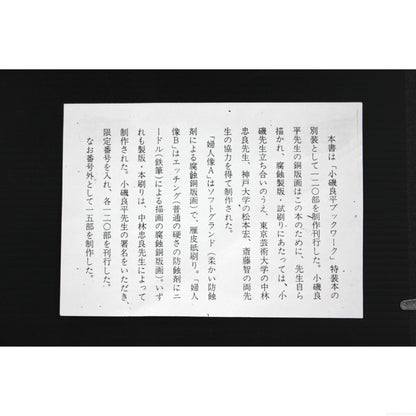 本書は「小磯良平ブックワーク」特装本の
別装として一二〇部を制作刊行した。小磯良
平先生の銅版画はこの本のために、先生自ら
描かれ、腐蝕製版・試刷りにあたっては、小
磯先生立ち合いのうえ、東京芸術大学の中林
忠良先生、神戸大学の松本宏、斎藤智の両先
生の協力を得て制作された。
「婦人像A」はソフトグランド(柔かい防蝕
剤による腐蝕銅版画)で、雁皮紙刷り。「婦人
像B」はエッチング(普通の硬さの防蝕剤にニ
ードル(鉄筆)による描画の腐蝕銅版画)。いず
れも製版・本刷りは、中林忠良先生によって
制作された。小磯良平先生の署名をいただき、
限定番号を入れ、各一二〇部を刊行した。
なお番号外として一五部を制作した。